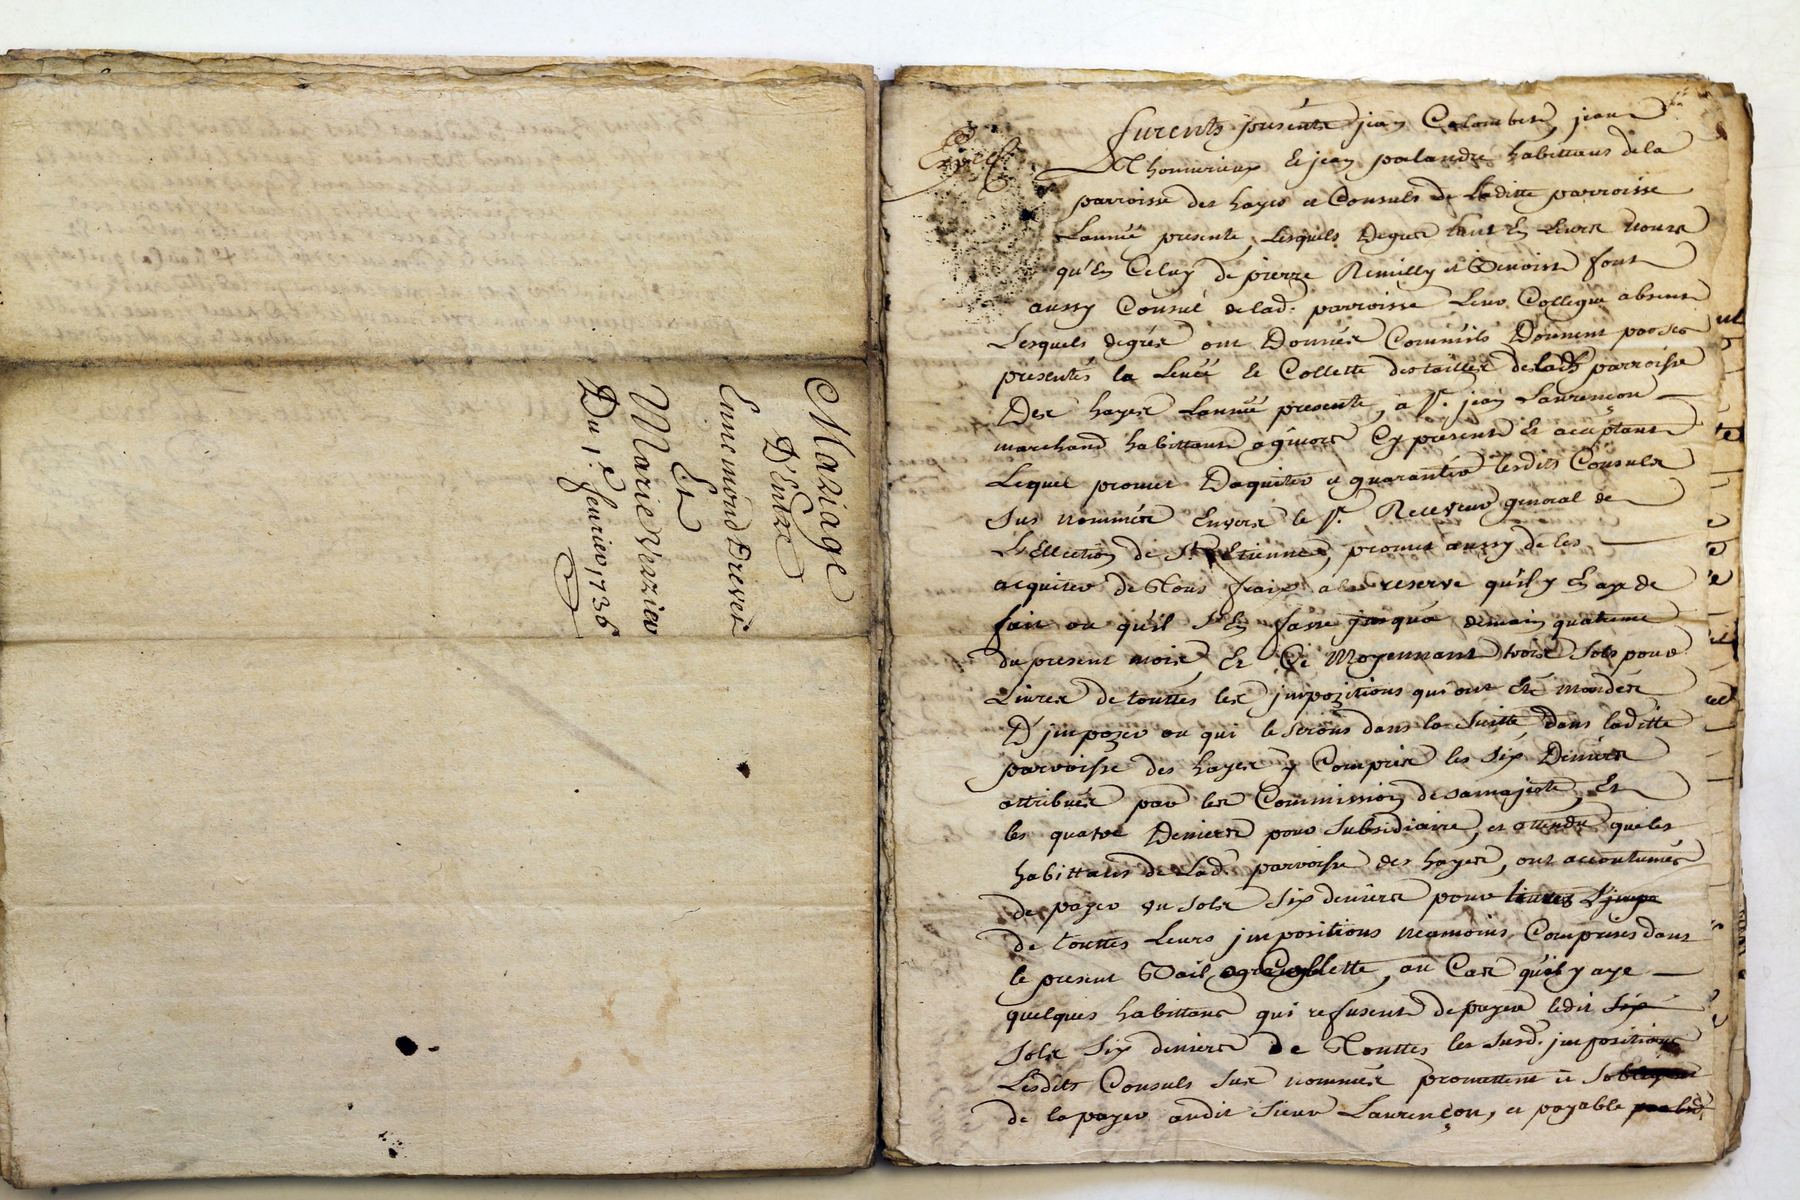 Mariage
D'Entre
Ennemond Drevet
Et
Marie Verzier
Du 1.e feurier 1736
Exped.
furents presents jean Colombet, jean
Thomerieux Et jean palandre habittans de la
parroisse des hayes et Consuls de laditte parroisse
Lannée presente, Lesquels Degré tant En Leurs noms
qu'En Celuy de pierre Remilly et Benoist font
aussy Consul de lad. parroisse Leur Collegue absent
Lesquels degrés ont Donnés Commils Donnent par ses
presentes la Levée Et Collette des tailles de lad. parroisse
Des hayes Lannée presente, a Sr. jean Laurençon
marchand habittant a givors Cy present Et acceptant
Lequel promet Daquiter et guarantir lesdits Consuls
Sus nommés Envers le Sr. Receveur general de
L'Ellection de St. Etienne, promet aussy de les
acquiter de Tous fraix a la reserve qu'il y En aye de
fait ou qu'il S'En fasse jusqua demain quatrieme
du present mois, Et Ce Moyennant trois Sols pour
Livres de touttes les jmpozitions qui ont Eté mandés
D'jmpozer ou qui le seronts dans la Suitte dans laditte
parroisse des hayes y Compris les Six Deniers
attribués par les Commission de sa majesté, Et
les quatre Deniers pour Subsidiaire, et attendu que les
habittans de Lad. parroisse des hayes, ont accoutumés
de payer un Sols Six deniers pour
de touttes Leurs jmpositions neamoins Comprises dans
le present Bail Collette, au Cas qu'il y aye
quelques habittans qui refusent de payer ledit Six
Sols Six deniers de Touttes les Susd. jmpositions
Lesdits Consuls Sus nommés promettent et
de la payer audit Sieur Laurençon, et payable